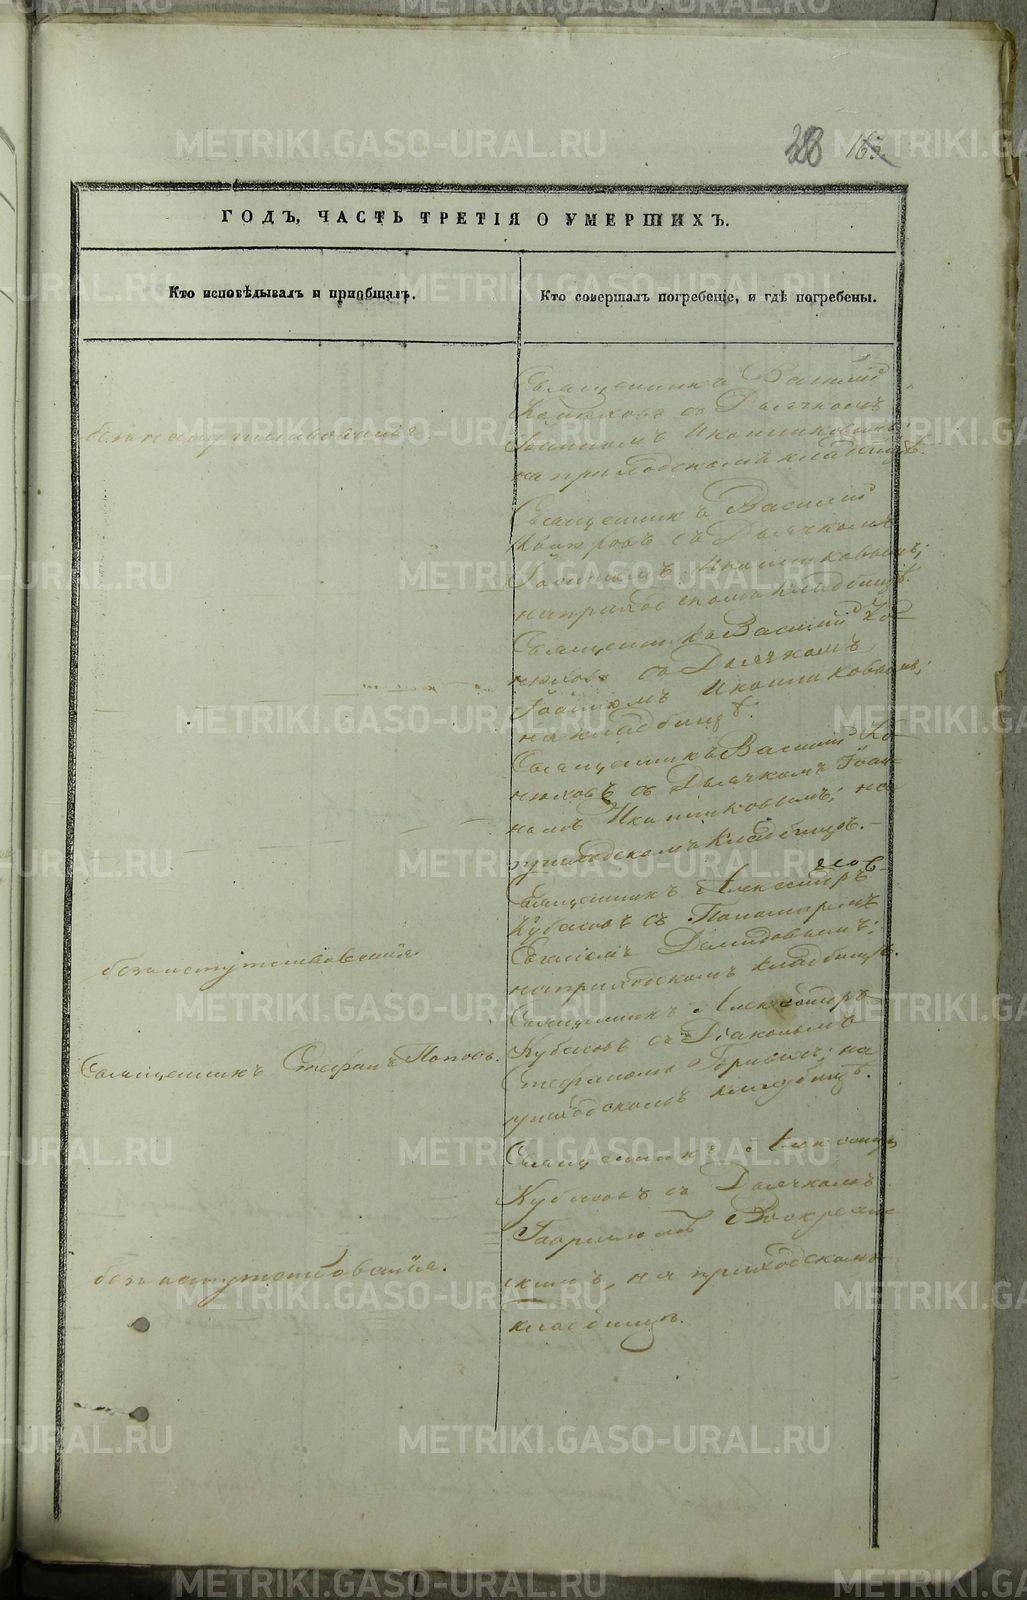 288 163.
ГОДЪ, ЧАСТЬ ТРЕТІЯ О УМЕРШИХЪ.
Кто исповѣдывалъ и пріобщалъ.
Кто совершалъ погребеніе, и гдѣ погребены.
Священникъ Василій
съ Дьячкомъ
Іоанномъ Иконниковымъ;
на приходскомъ кладбищѣ.
Священникъ Василій
съ Дьячкомъ
Іоанномъ Иконниковымъ;
на приходскомъ кладбищѣ.
Священникъ Василій Ко-
нюховъ съ Дьячкомъ
Іоанномъ Иконниковымъ;
на кладбищѣ.
Священникъ Василій Ко-
нюховъ съ Дьячкомъ Іоан-
номъ Иконниковымъ; на
приходскомъ кладбищѣ.
безъ напутствованія.
Священникъ Александръ
Кубасовъ съ Пономаремъ
Демидовымъ;
на приходскомъ кладбищѣ.
Священникъ Стефанъ Поповъ.
Священникъ Александръ
Кубасовъ съ Діакономъ
Стефаномъ на
приходскомъ кладбищѣ.
безъ напутствованія.
Священникъ
Кубасовъ съ Дьячкомъ
Гавріиломъ Воскресен-
скимъ, на приходскомъ
кладбищѣ.
METRIKI.GASO-URAL.RU